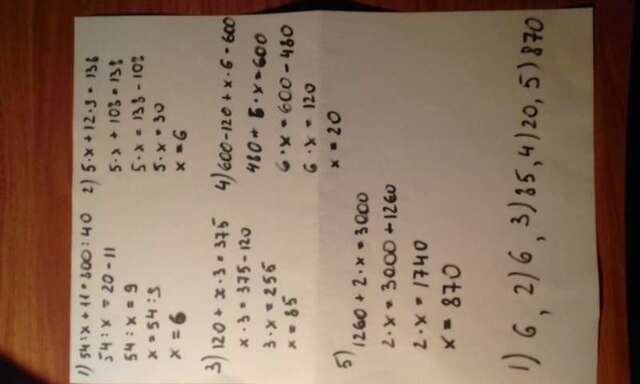 1) 54 : x + 11 = 800 : 40
54 : x = 20 - 11
54 : x = 9
x = 54 : 9
x = 6
2) 5 · x + 12 · 9 = 138
5 · x + 108 = 138
5 · x = 138 - 108
5 · x = 30
x = 6
3) 120 + x · 3 = 375
x · 3 = 375 - 120
3 · x = 255
x = 85
4) 600 - 120 + x · 6 = 600
480 + 6 · x = 600
6 · x = 600 - 480
6 · x = 120
x = 20
5)
1260 + 2 · x = 3000
2 · x = 3000 - 1260
2 · x = 1740
x = 870
1) 6, 2) 6, 3) 85, 4) 20, 5) 870